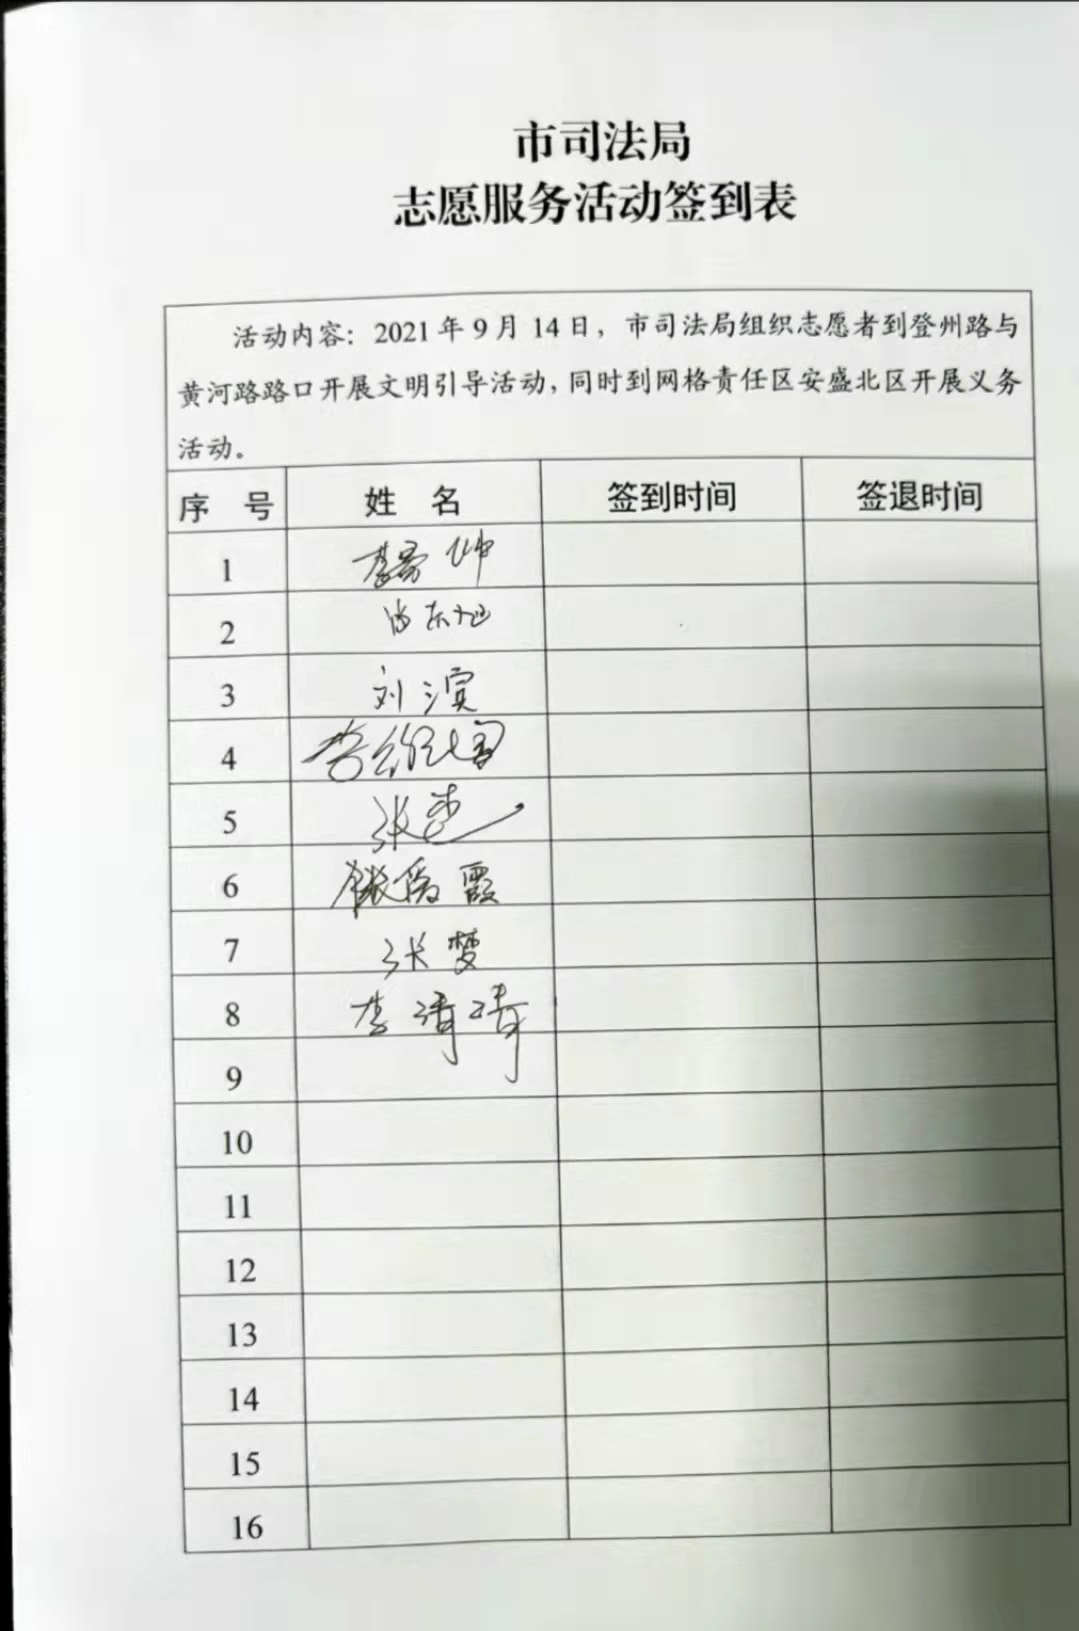 市司法局
志愿服务活动签到表
活动内容：2021年9月14日，市司法局组织志愿者到登州路与
黄河路路口开展文明引导活动，同时到网格责任区安盛北区开展义务
活动。
序 号 姓 名 签到时间 签退时间
1
2
3 刘滨
4
5 张
6 霞
7 张梦
8 李清清
9
10
11
12
13
14
15
16